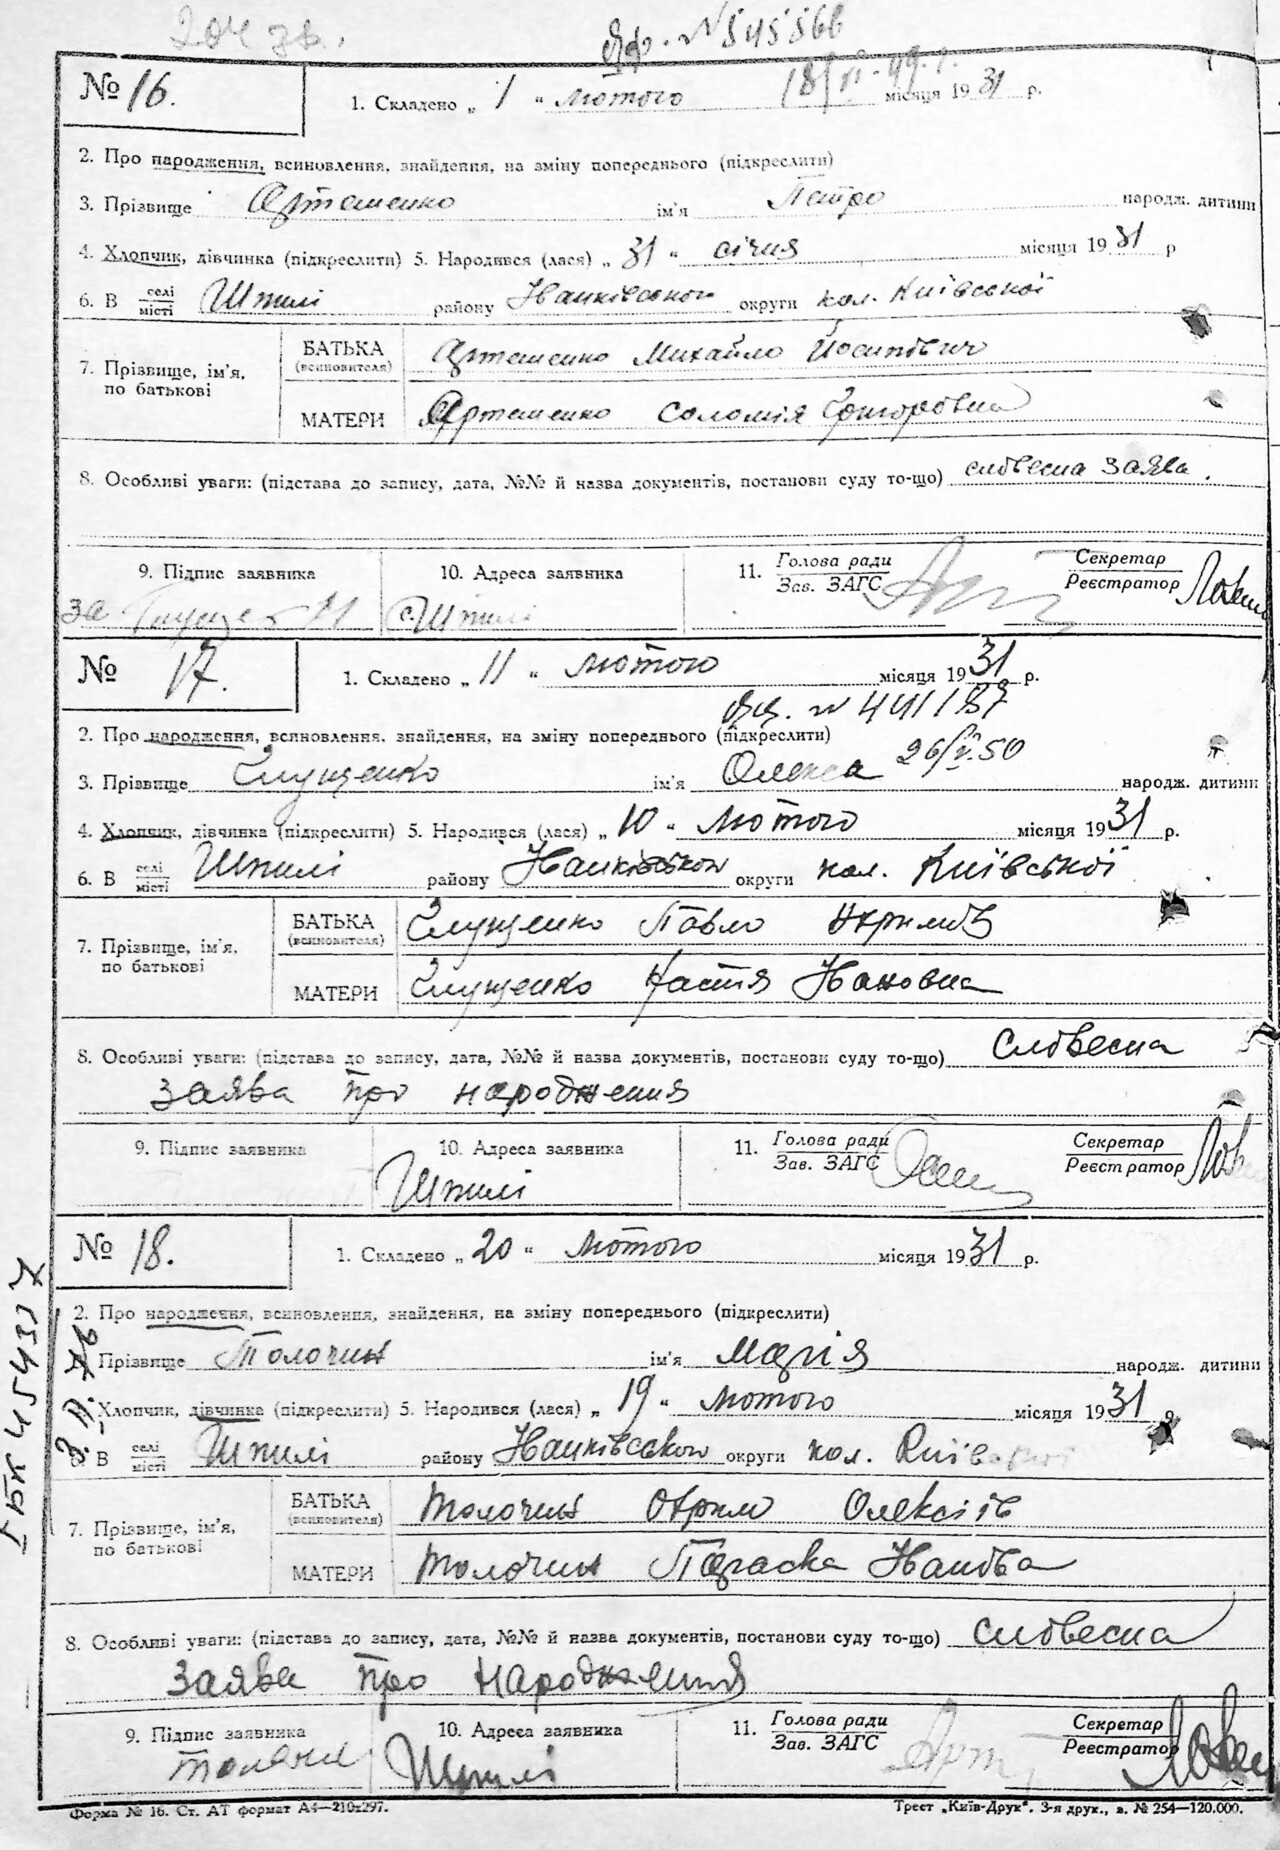 № 16. 1. Складено „ 1 “ лютого місяця 1931 р.
2. Про народження, всиновлення, знайдення, на зміну попереднього (підкреслити)
3. Прізвище Артеменко ім'я Петро народж. дитини
4. Хлопчик, дівчинка (підкреслити) 5. Народився (лася) „ 31 “ січня місяця 1931 р
6. В селі місті Шпилі району округи кол. Київської
7. Прізвище, ім'я, по батькові БАТЬКА (всиновителя) Артеменко Михайло Йосипович
МАТЕРИ Артеменко Соломія Григоровна
8. Особливі уваги: (підстава до запису, дата, №№ й назва документів, постанови суду то-що) словесна заява.
9. Підпис заявника 10. Адреса заявника 11. Голова ради Зав. ЗАГС Секретар Реєстратор
за с. Шпилі
№ 17. 1. Складено „ 11 “ лютого місяця 1931 р.
№ 441187
2. Про народження, всиновлення, знайдення, на зміну попереднього (підкреслити)
26/V.50
3. Прізвище Глущенко ім'я Олекса народж. дитини
4. Хлопчик, дівчинка (підкреслити) 5. Народився (лася) „ 10 “ лютого місяця 1931 р.
6. В селі місті Шпилі району округи кол. Київської
7. Прізвище, ім'я, по батькові БАТЬКА (всиновителя) Глущенко Павло
МАТЕРИ Глущенко Настя
8. Особливі уваги: (підстава до запису, дата, №№ й назва документів, постанови суду то-що) словесна
заява про народження
9. Підпис заявника 10. Адреса заявника 11. Голова ради Зав. ЗАГС Секретар Реєстратор
Шпилі
№ 18. 1. Складено „ 20 “ лютого місяця 1931 р.
2. Про народження, всиновлення, знайдення, на зміну попереднього (підкреслити)
Прізвище Толочин ім'я Марія народж. дитини
Хлопчик, дівчинка (підкреслити) 5. Народився (лася) „ 19 “ лютого місяця 1931 р
В селі місті Шпилі району округи кол. Київської
7. Прізвище, ім'я, по батькові БАТЬКА (всиновителя) Толочин Олексіїв
МАТЕРИ Толочин Параска
8. Особливі уваги: (підстава до запису, дата, №№ й назва документів, постанови суду то-що) словесна
заява про народження
9. Підпис заявника 10. Адреса заявника 11. Голова ради Зав. ЗАГС Секретар Реєстратор
Толочин Шпилі
Форма № 16. Ст. АТ формат А4—210х297. Трест „Київ-Друк“. 3-я друк., з. № 254—120.000.